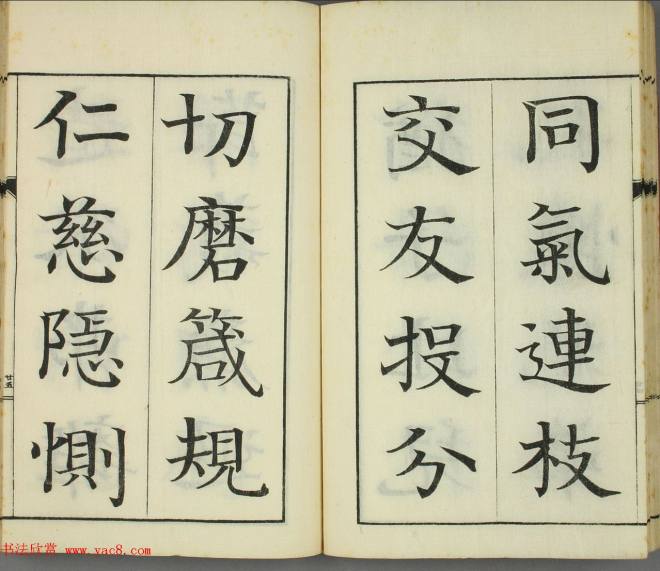 同氣連枝
交友投分
切磨箴規
仁慈隱惻
廿五
书法欣赏 www.yac8.com